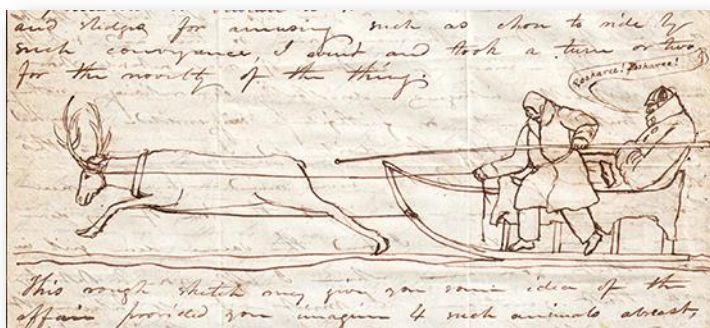 and sledges for amusing such as chose to ride by
such conveyance, I went and took a turn or two
for the novelty of the thing.
Posharee! Posharee!
This rough sketch may give you some idea of the
affair provided you imagine 4 such animals abreast,